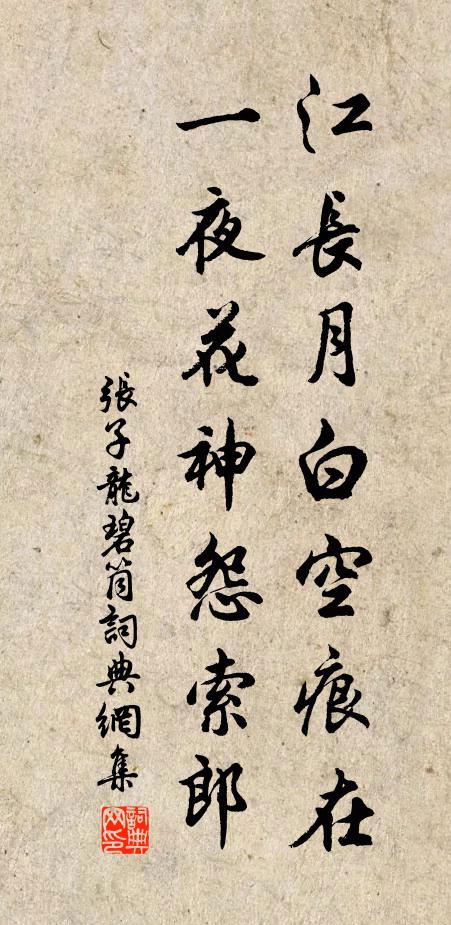 江長月白空痕在
一夜花神怨索郎
張子龍碧筒詞典網集
詞典网印